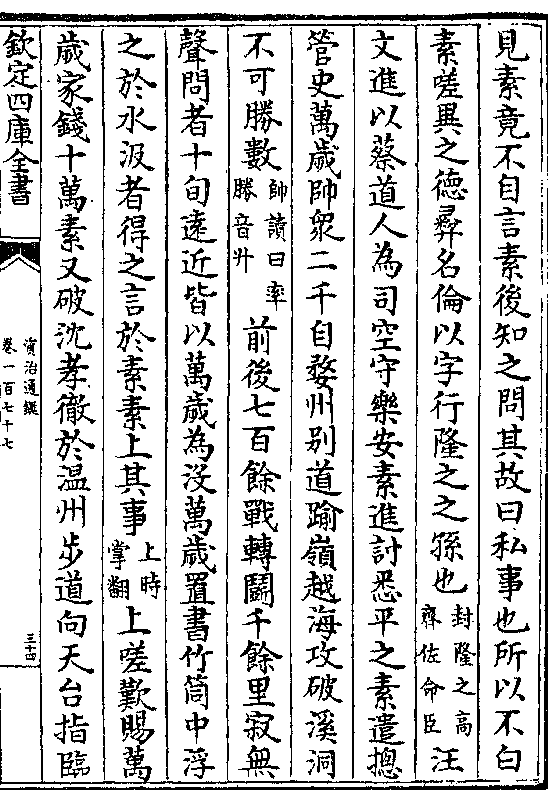 見素竟不自言素後知之問其故曰私事也所以不白
素嗟異之德彝名倫以字行隆之之孫也封隆之高齊佐命臣汪
文進以蔡道人為司空守樂安素進討悉平之素遣摠
管史萬歲帥衆二千自婺州别道踰嶺越海攻破溪洞
不可勝數帥讀曰率勝音升前後七百餘戰轉鬭千餘里寂無
聲問者十旬遠近皆以萬歲為沒萬歲置書竹筒中浮
之於水汲者得之言於素素上其事上時掌翻上嗟歎賜萬
歲家錢十萬素又破沈孝徹於温州步道向天台指臨
欽定四庫全書
資治通鑑
卷一百七十七
三十四